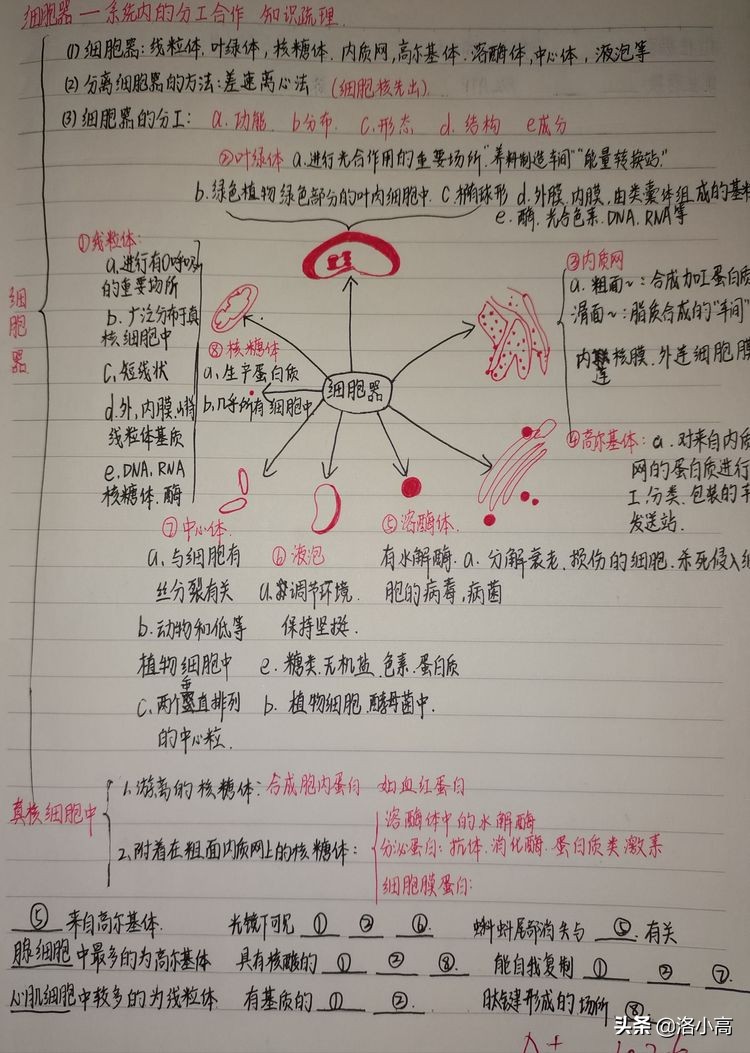 细胞器—系统内的分工合作 知识疏理.
(1) 细胞器: 线粒体. 叶绿体, 核糖体. 内质网, 高尔基体. 溶酶体, 中心体, 液泡等
(2) 分离细胞器的方法: 差速离心法 (细胞核先出)
(3) 细胞器的分工: a.功能. b分布. c.形态 d.结构 e成分
②叶绿体 a.进行光合作用的重要场所"养料制造车间""能量转换站."
b.绿色植物绿色部分的叶内细胞中. c椭球形 d.外膜.内膜, 由类囊体组成的基粒
e.酶.光合色素.DNA.RNA等
①线粒体:
a.进行有O呼吸
的重要场所
b.广泛分布于真
核细胞中
c.短线状
d.外,内膜.嵴
线粒体基质
e.DNA.RNA
核糖体.酶
⑧核糖体
a.生产蛋白质
b.几乎所有细胞中
细胞器
③内质网
a.粗面~: 合成加工蛋白质
滑面~: 脂质合成的"车间"
内连核膜.外连细胞膜
④高尔基体: a.对来自内质
网的蛋白质进行
工.分类.包装的车
发送站.
⑦中心体
a.与细胞有
丝分裂有关
b.动物和低等
植物细胞中
c.两个垂直排列
的中心粒.
⑥液泡
a.调节环境.
保持坚挺.
e.糖类.无机盐.色素.蛋白质
b.植物细胞.酵母菌中.
⑤溶酶体.
有水解酶. a.分解衰老.损伤的细胞.杀死侵入细
胞的病毒,病菌
细胞器
真核细胞中
1.游离的核糖体: 合成胞内蛋白 如血红蛋白
2.附着在粗面内质网上的核糖体:
溶酶体中的水解酶
分泌蛋白: 抗体.消化酶.蛋白质类激素
细胞膜蛋白:
⑤ 来自高尔基体. 光镜下可见 ① ② ⑥ 蝌蚪尾部消失与 ⑤ 有关
腺细胞中最多的为高尔基体 具有核酸的 ① ② ⑧ 能自我复制 ① ② ⑦
心肌细胞中较多的为线粒体 有基质的 ① ② 肽键形成的场所 ⑧
头条 @洛小高